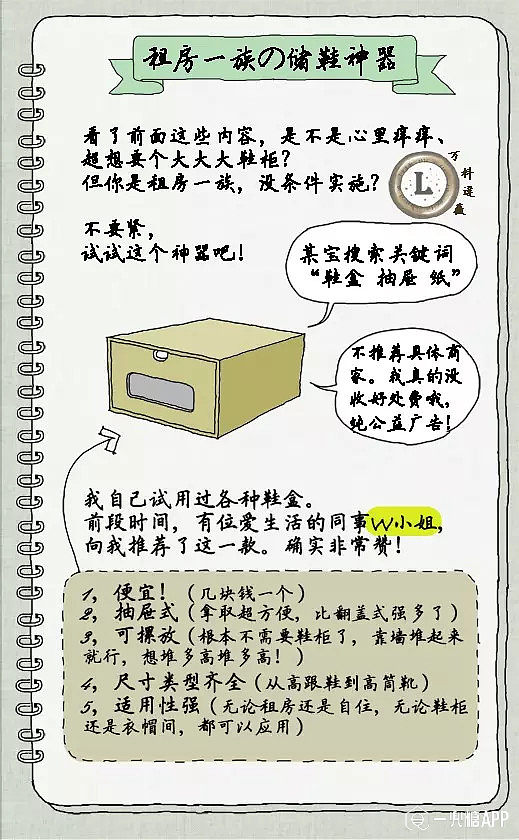 租房一族の储鞋神器
看了前面这些内容，是不是心里痒痒、
超想要个大大大鞋柜？
但你是租房一族，没条件实施？
L
万科逯薇
不要紧，
试试这个神器吧！
某宝搜索关键词
“鞋盒 抽屉 纸”
不推荐具体商
家。我真的没
收好处费哦，
纯公益广告！
我自己试用过各种鞋盒。
前段时间，有位爱生活的同事W小姐，
向我推荐了这一款。确实非常赞！
1，便宜！（几块钱一个）
2，抽屉式（拿取超方便，比翻盖式强多了）
3，可摞放（根本不需要鞋柜了，靠墙堆起来
就行，想堆多高堆多高！）
4，尺寸类型齐全（从高跟鞋到高筒靴）
5，适用性强（无论租房还是自住，无论鞋柜
还是衣帽间，都可以应用）
一兜糖APP